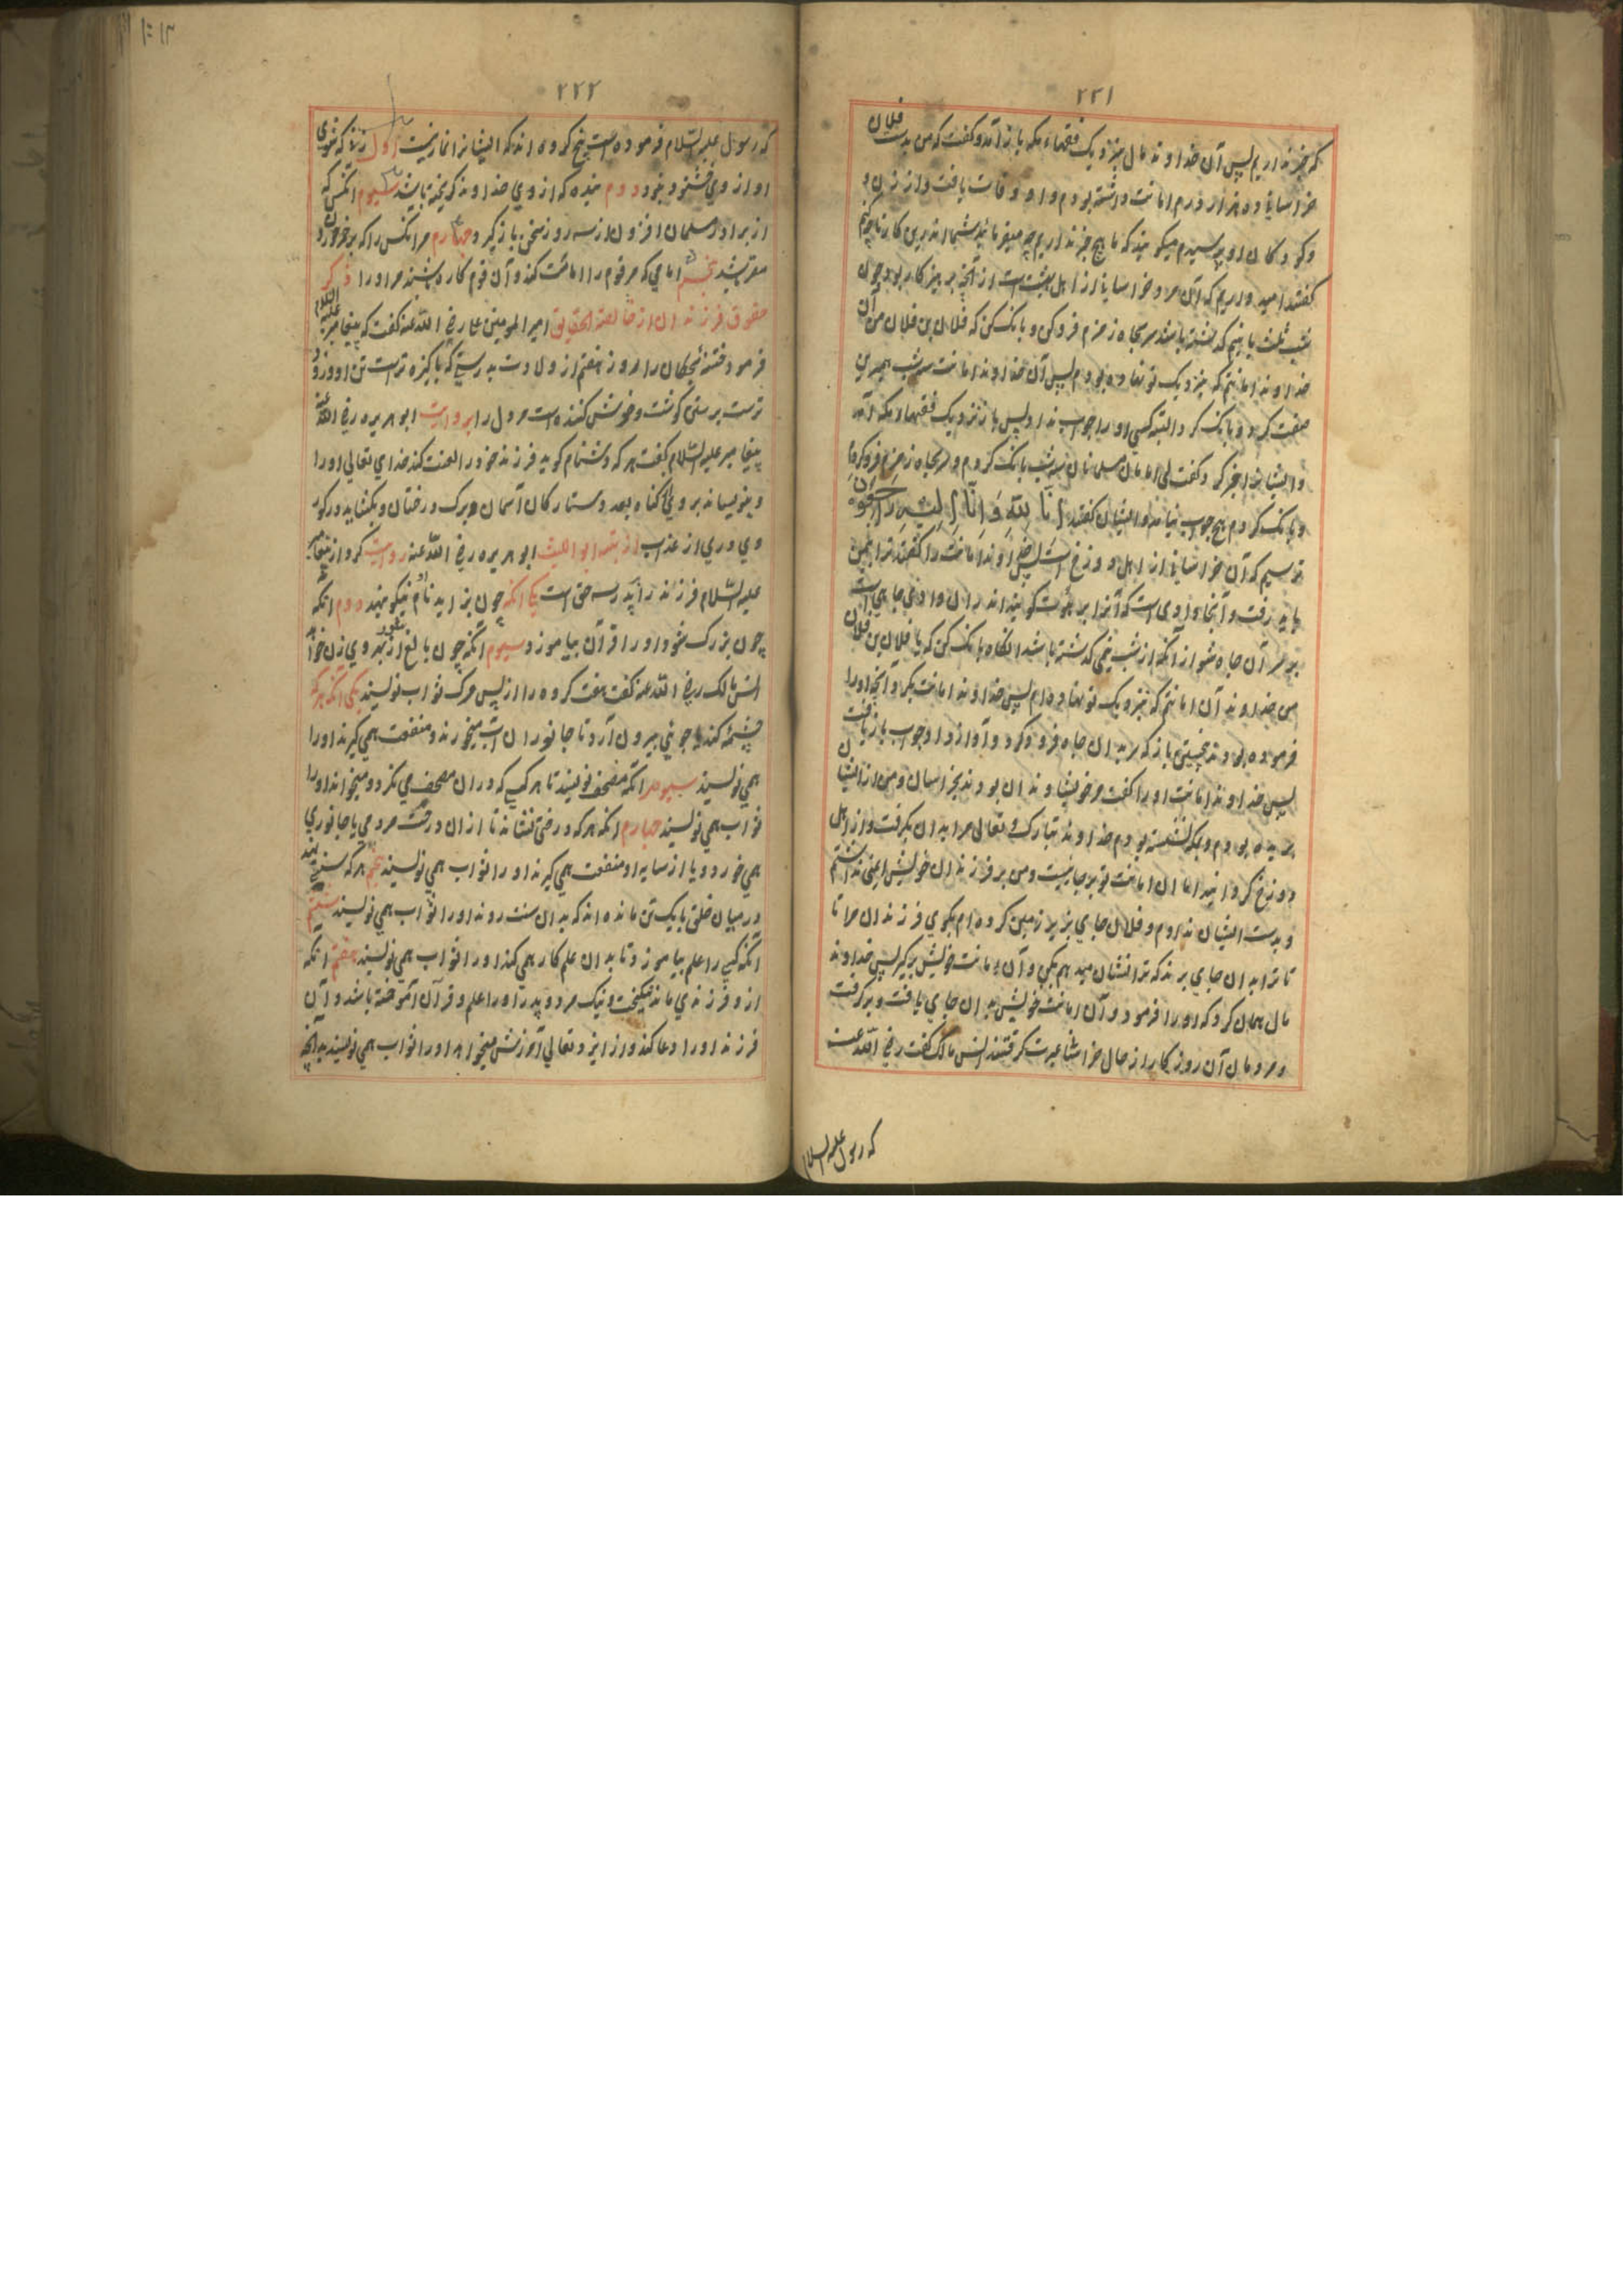 ۲۲۱
که خبر نداریم پس آن خداوند مال بنزدیک فقهاء مکه باز آمد و کفت که من بدست فلان
خراسانی ده هزار درم امانت داشته بودم و او وفات یافت و از زن و
و کودکان او پرسیدم میکویند که ما هیچ خبر نداریم چه میفرمائید شما اندرین کار تا چکنم
کفتند امید داریم که آن مرد خراسانی از اهل بهشت است از آنچه پرهیزکار بود چون
شب ثلث یا نیم کذشته باشد بر سر چاه زمزم فرو کن و بانک کن که فلان بن فلان من آن
خداوند امانتم که بنزدیک تو نهاده بودم پس آن خداوند امانت سه شب همبرین
صفت کرد و بانک کرد البته کسی او را جواب نداد پس باز نزدیک فقهاء مکه آمد
و ایشانرا خبر کرد و کفت ای امامان مسلمانان سه شب بانک کردم و بر چاه زمزم فرو کردم
و بانک کردم هیچ جواب نیامد و ایشان کفتند اِنَّا لِلّٰهِ وَاِنَّا اِلَیْهِ رَاجِعُونَ
ترسیم که آن خراسانی از اهل دوزخ است پس خداوند امانت را کفتند ترا بیمن
باید رفت و آنجا وادی است که آنرا برهوت کویند اندران وادی چاهی است
بر سر آن چاه شو از آنکه از شب نیمی کذشته باشد انکاه بانک کن که یا فلان بن فلان
من خداوند آن امانتم که بنزدیک تو نهاده ام پس خداوند امانت بکرد آنچه او را
فرموده بودند نخستین باز که سر بدان چاه فرو کرد و آواز داد جواب باز یافت
پس خداوند امانت او را کفت مر خویشاوندان بودند بخراسان و من از ایشان
بریده بودم و بمکه نشسته بودم خداوند تبارک و تعالی مرا بدان بکرفت و از اهل
دوزخ کردانید اما ان امانت تو بر جاییست و من بر فرزندان خویش ایمنی نداشتم
و بدست ایشان ندادم و فلان جای بزیر زمین کرده ام بکوی فرزندان مرا تا
تا ترا بدان جای برند که ترا نشان میدهم بکن و آن امانت خویش برکیر پس خداوند
مال همان کرد که او را فرمود و آن امانت خویش بدان جای یافت و برکرفت
و مردمان آن روزکار از حال خراسانی عبرت کرفتند انس مالک کفت رضی الله عنه
که رسول علیه السلام
۲۲۲
که رسول علیه السّلام فرموده است پنج کروه اند که ایشانرا نماز نیست اول زنیکه شوی
او از وی خشنود نبود دوم بنده که از وی خداوند کریخته باشد سیوم آنکس که
از برادر مسلمان افزون از سه روز سخن باز کیرد چهارم مر انکس را که بر خمر خوردن
مقر باشد پنجم امامی که مر قوم را امامت کند و آن قوم کاره باشند مر او را ذکر
حقوق فرزندان از خالصة الحقایق امیر المومنین علی رضی الله عنه کفت که پیغامبر علیه السلام
فرمود ختنه کنید کودکان را روز هفتم از ولادت بدرستی که پاکیزه تر است تن او و زود
تر است برستن کوشت و خوش کننده است مر دل را بروایت ابو هریره رضی الله عنه
پیغامبر علیه السّلام کفت هر که دشنام کوید فرزند خود را لعنت کند خدای تعالی او را
و بنویساند بر وی کناه بعدد ستارکان آسمان و برک درختان و بکشاید در کور
وی دری از عذاب از بستان ابو اللیث ابو هریره رضی الله عنه روایت کرد از پیغامبر
علیه السّلام فرزند را بر پدر سه حق است یکی آنکه چون بزاید نام نیکو نهند دوم انکه
چون بزرک شود او را قرآن بیاموزد سیوم آنکه چون بالغ شود از بهر وی زن خواهد
انس مالک رضی الله عنه کفت هفت کروه را از پس مرک ثواب نویسند یکی آنکه هر که
چشمه کند یا جوئی بیرون آرد تا جانوران آب میخورند و منفعت همی کیرند او را
همی نویسند سیوم آنکه مصحف نویسد تا هر کسی که در ان مصحف می نکرد و میخواند او را
ثواب همی نویسند چهارم آنکه هر که درختی نشاند تا از ان درخت مردمی یا جانوری
همی خورد و یا از سایه او منفعت همی کیرند او را ثواب همی نویسند پنجم هر که سنتی نهد
در میان خلق یا یک تن مانده اند که بدان سنت روند او را ثواب همی نویسند ششم
آنکه کسی را علم بیاموزد تا بدان علم کار همی کند او را ثواب همی نویسند هفتم آنکه
از و فرزندی ماند نیکبخت و نیک مرد و پدر او را علم و قرآن آموخته باشد و آن
فرزند او را دعا کند و از ایزد تعالی آمرزش میخواهد او را ثواب همی نویسند بدانچه